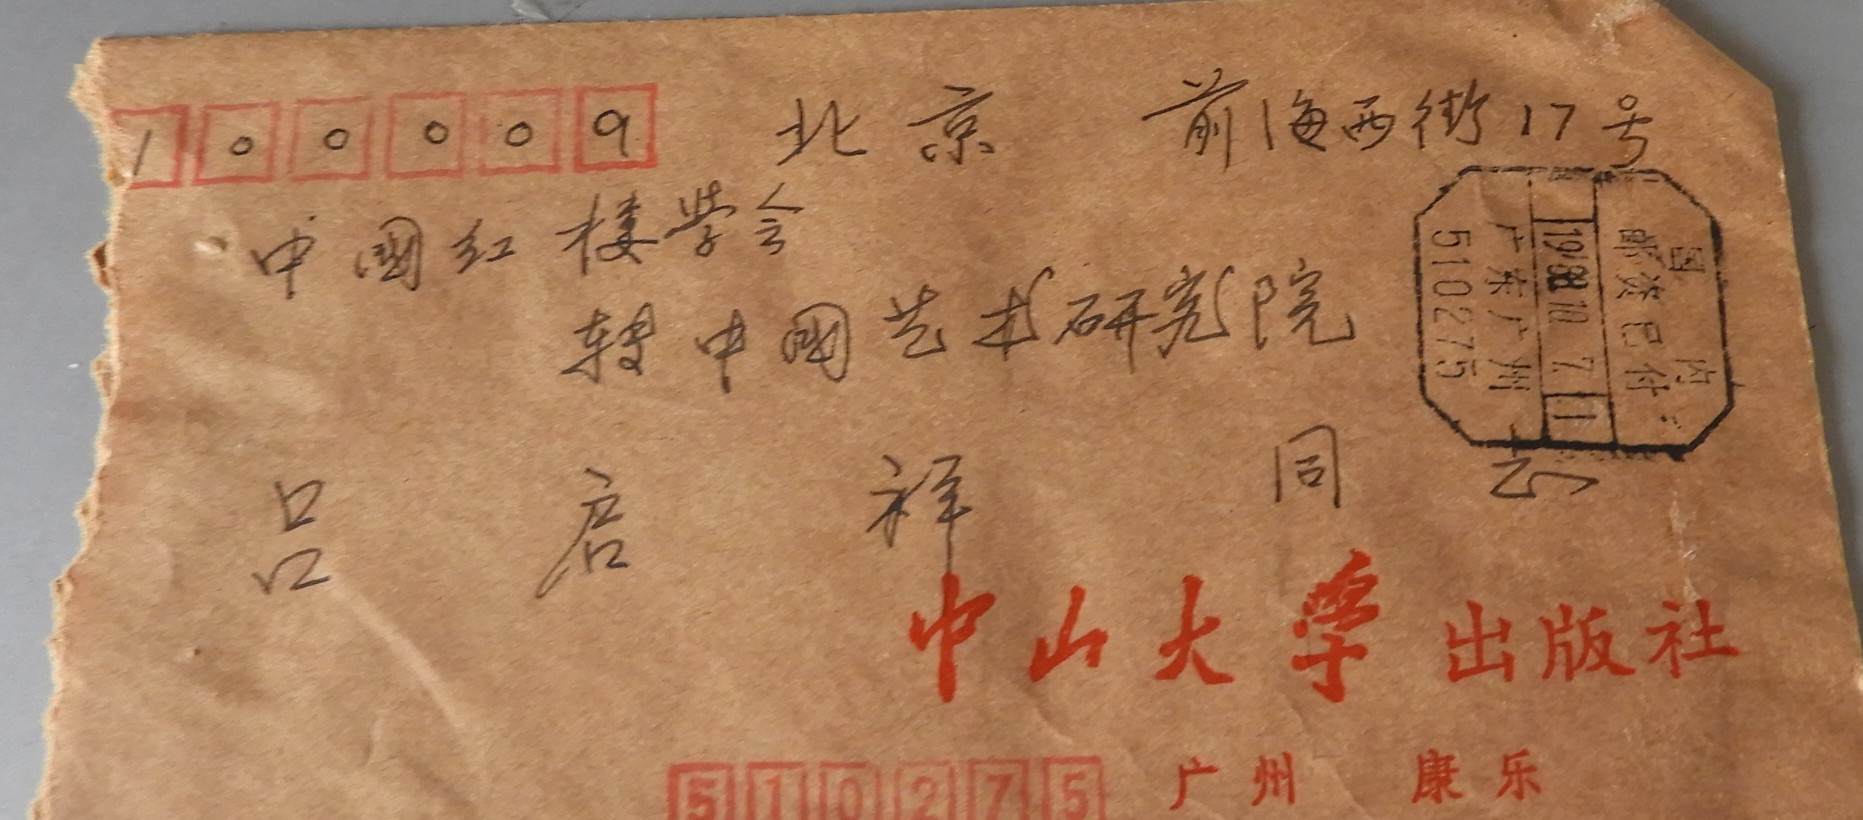 100009 北京 前海西街17号
中国红楼学会
转中国艺术研究院
吕启祥 同志
国内
邮资已付
1988.10.7.11
广东广州
510275
中山大学出版社
510275 广州 康乐